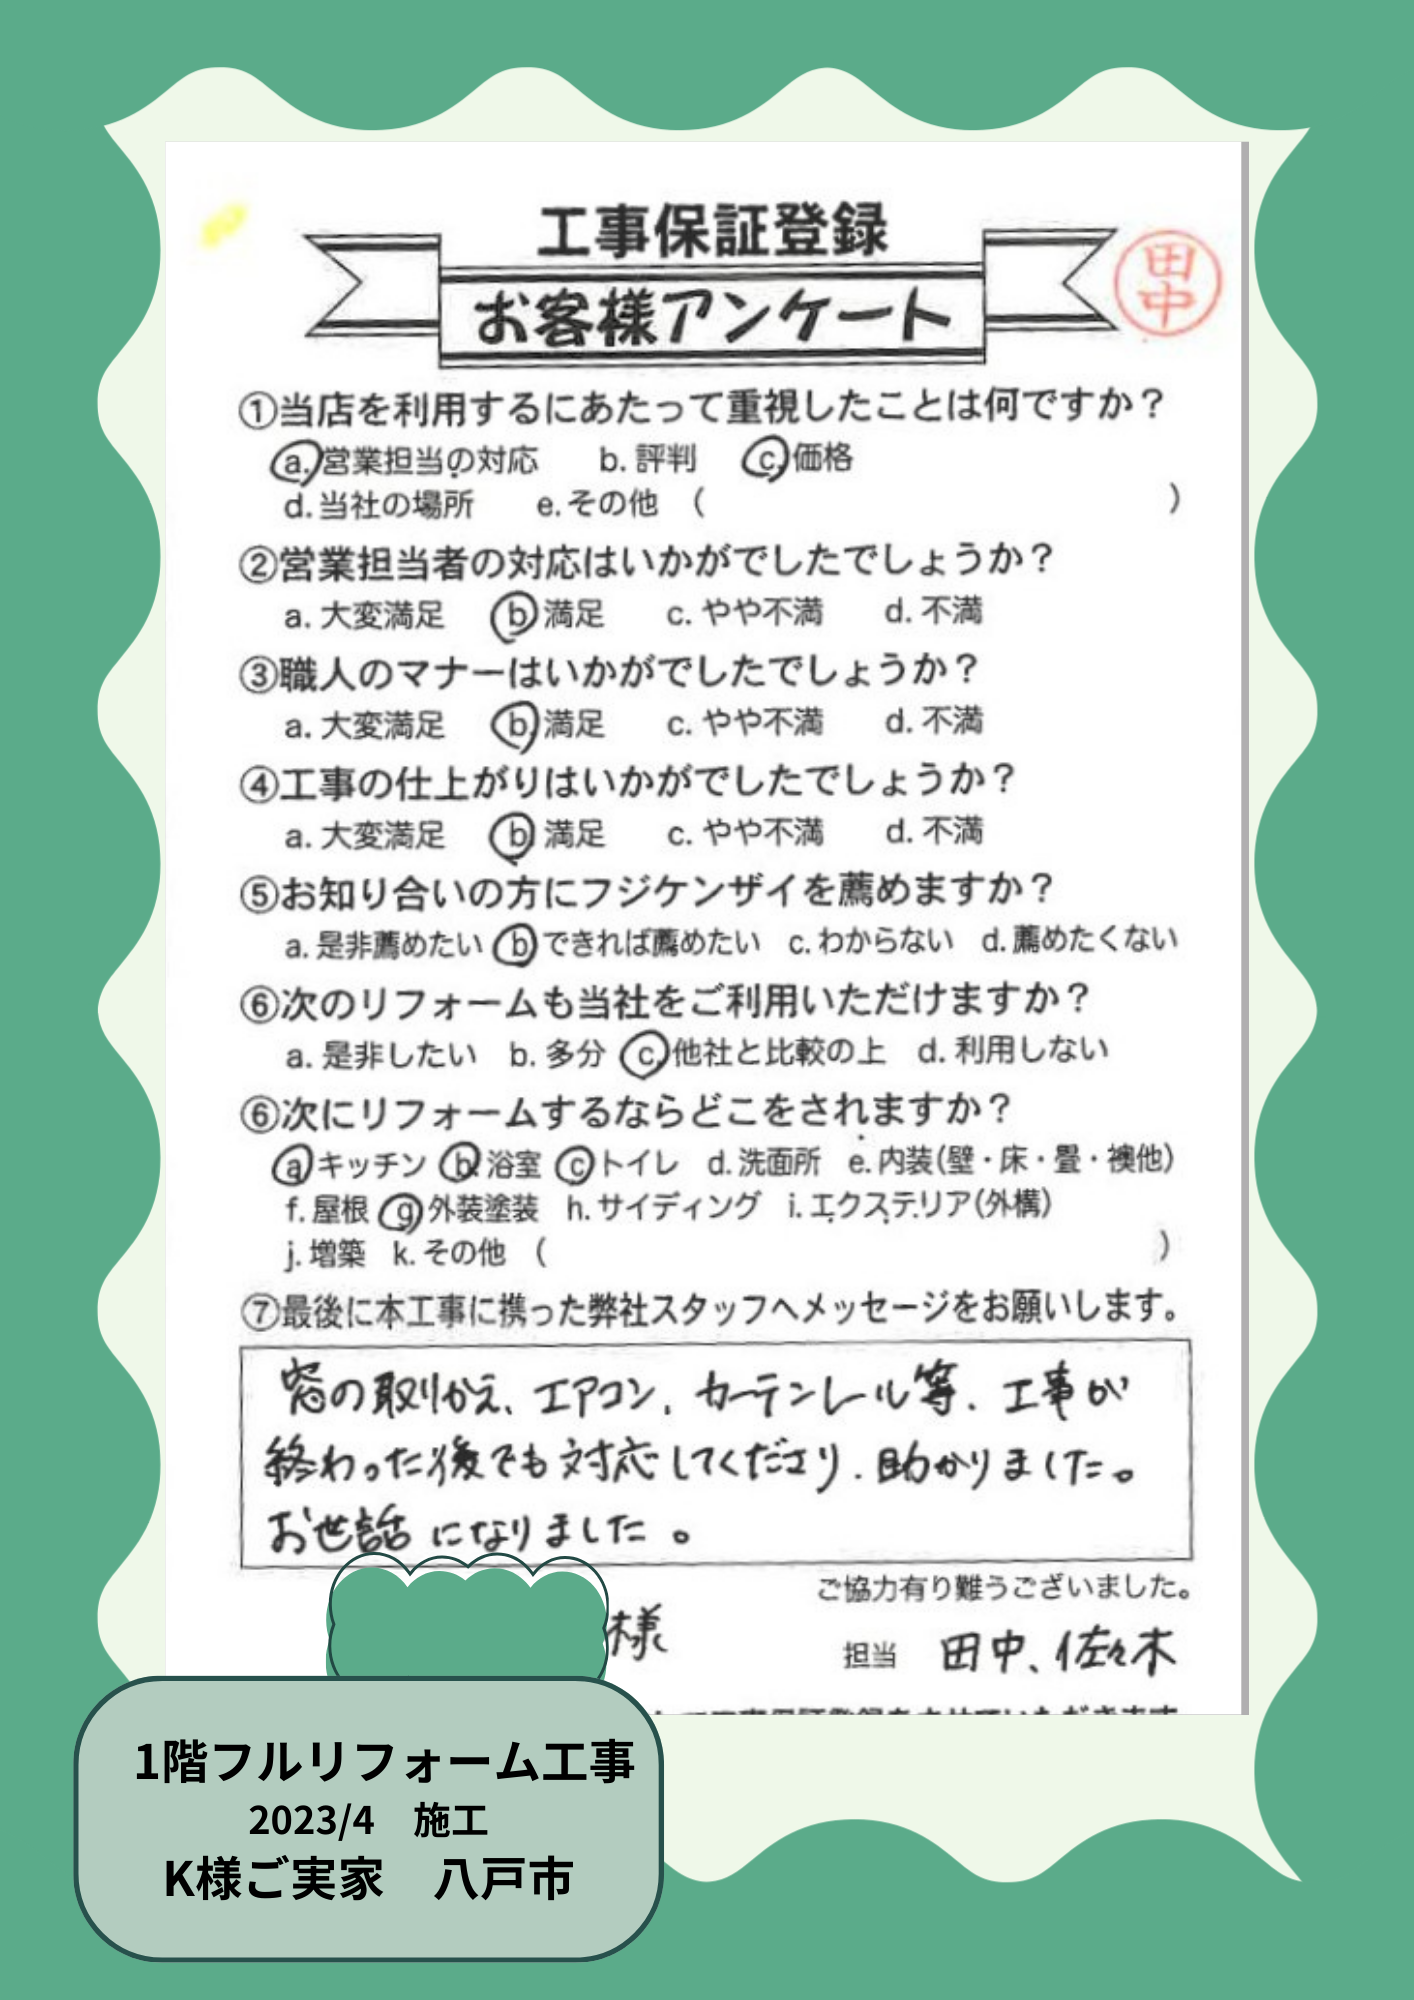 工事保証登録
お客様アンケート
田中
①当店を利用するにあたって重視したことは何ですか？
a.営業担当の対応　b.評判　c.価格
d.当社の場所　e.その他　(　)
②営業担当者の対応はいかがでしたでしょうか？
a.大変満足　b.満足　c.やや不満　d.不満
③職人のマナーはいかがでしたでしょうか？
a.大変満足　b.満足　c.やや不満　d.不満
④工事の仕上がりはいかがでしたでしょうか？
a.大変満足　b.満足　c.やや不満　d.不満
⑤お知り合いの方にフジケンザイを薦めますか？
a.是非薦めたい　b.できれば薦めたい　c.わからない　d.薦めたくない
⑥次のリフォームも当社をご利用いただけますか？
a.是非したい　b.多分　c.他社と比較の上　d.利用しない
⑥次にリフォームするならどこをされますか？
a.キッチン　b.浴室　c.トイレ　d.洗面所　e.内装(壁・床・畳・襖他)
f.屋根　g.外装塗装　h.サイディング　i.エクステリア(外構)
j.増築　k.その他　(　)
⑦最後に本工事に携った弊社スタッフへメッセージをお願いします。
窓の取りかえ、エアコン、カーテンレール等、工事が
終わった後でも対応してくださり、助かりました。
お世話になりました。
ご協力有り難うございました。
様
担当　田中、佐々木
1階フルリフォーム工事
2023/4　施工
K様ご実家　八戸市